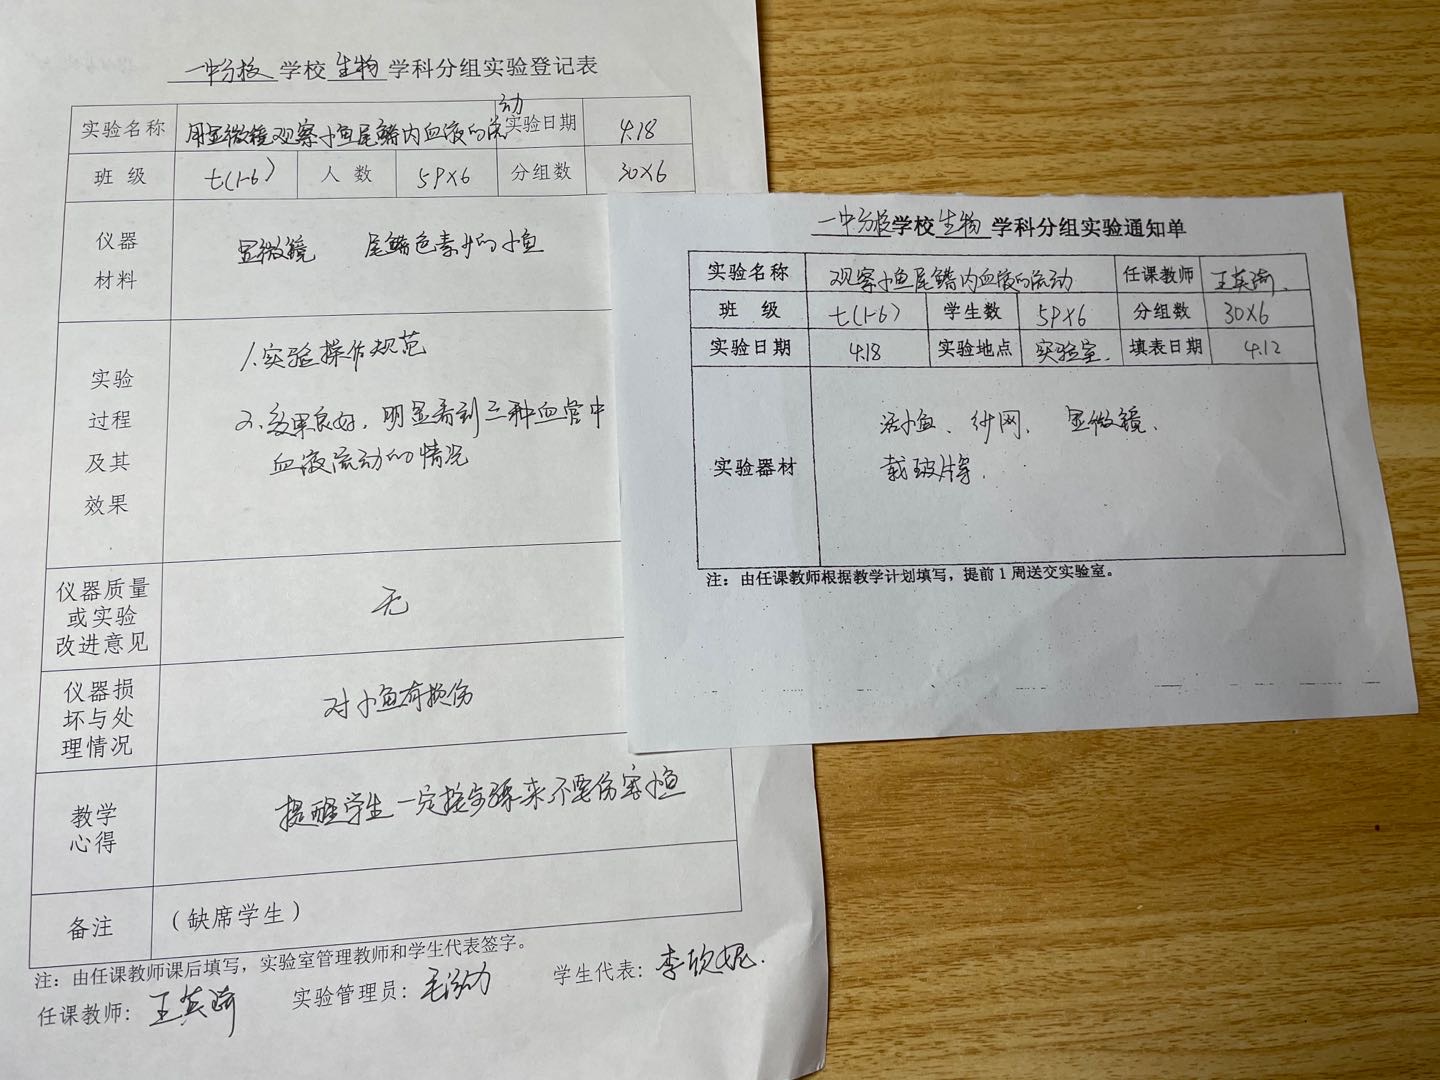 一中分校 学校 生物 学科分组实验登记表
实验名称 用显微镜观察小鱼尾鳍内血液的流动 实验日期 4.18
班 级 七(1-6) 人 数 59X6 分组数 30X6
仪器
材料
显微镜 尾鳍色素少的小鱼
实验
过程
及其
效果
1.实验操作规范
2.效果良好,明显看到三种血管中
血液流动的情况
仪器质量
或实验
改进意见
无
仪器损
坏与处
理情况
对小鱼有损伤
教学
心得
提醒学生一定按步骤来不要伤害小鱼
备注 (缺席学生)
注:由任课教师课后填写,实验室管理教师和学生代表签字。
任课教师: 王英 实验管理员: 毛 学生代表: 李欣妮.
一中分校学校 生物 学科分组实验通知单
实验名称 观察小鱼尾鳍内血液的流动 任课教师 王英
班 级 七(1-6) 学生数 59X6 分组数 30X6
实验日期 4.18 实验地点 实验室. 填表日期 4.12
实验器材
活小鱼、纱网、显微镜、
载玻片等.
注:由任课教师根据教学计划填写,提前1周送交实验室。